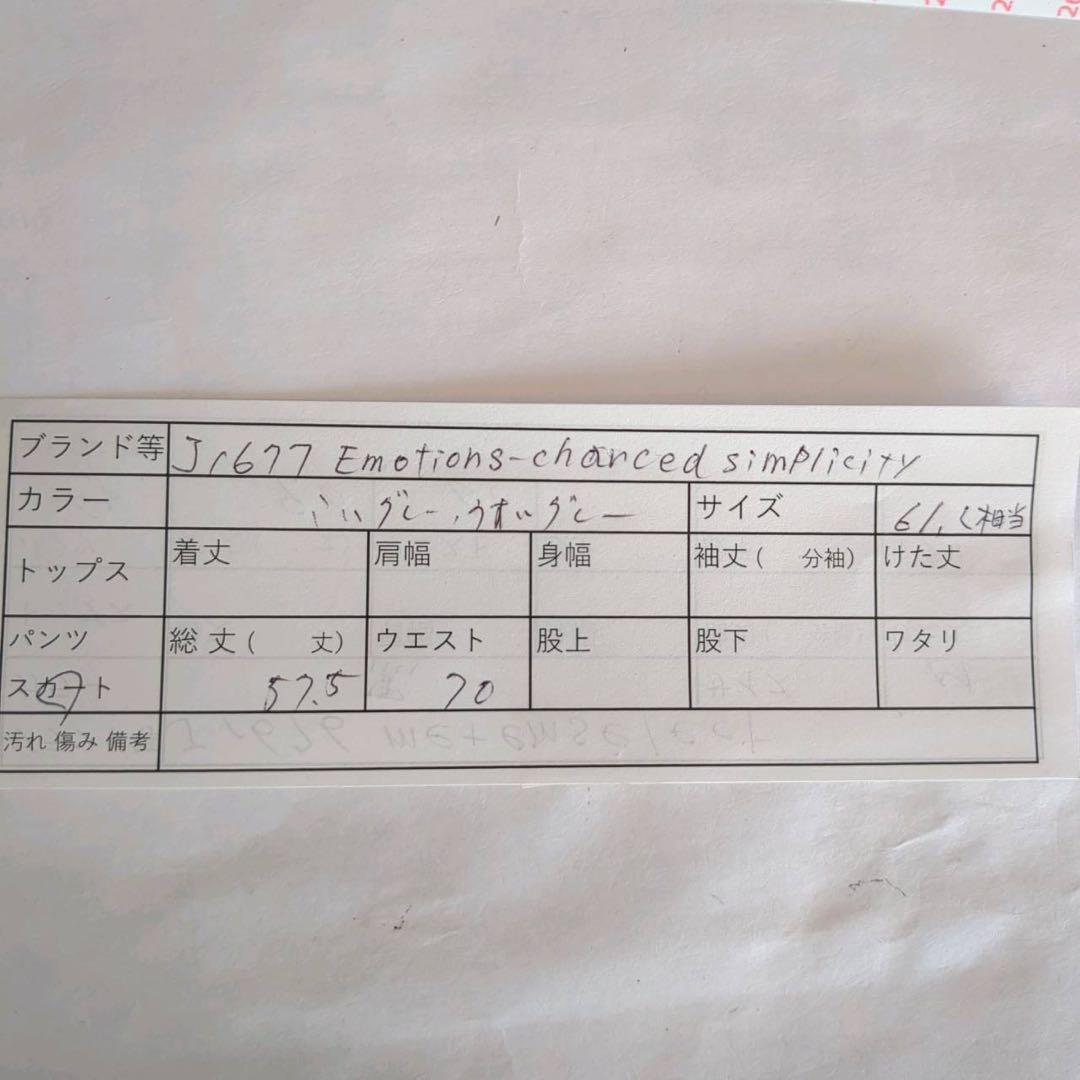 ブランド等 Jr677 Emotions-charced simplicity
カラー こいグレー、うすいグレー サイズ 61,く相当
トップス 着丈 肩幅 身幅 袖丈( 分袖) けた丈
パンツ 総丈( 丈) ウエスト 股上 股下 ワタリ
スカート 57.5 70
汚れ 傷み 備考